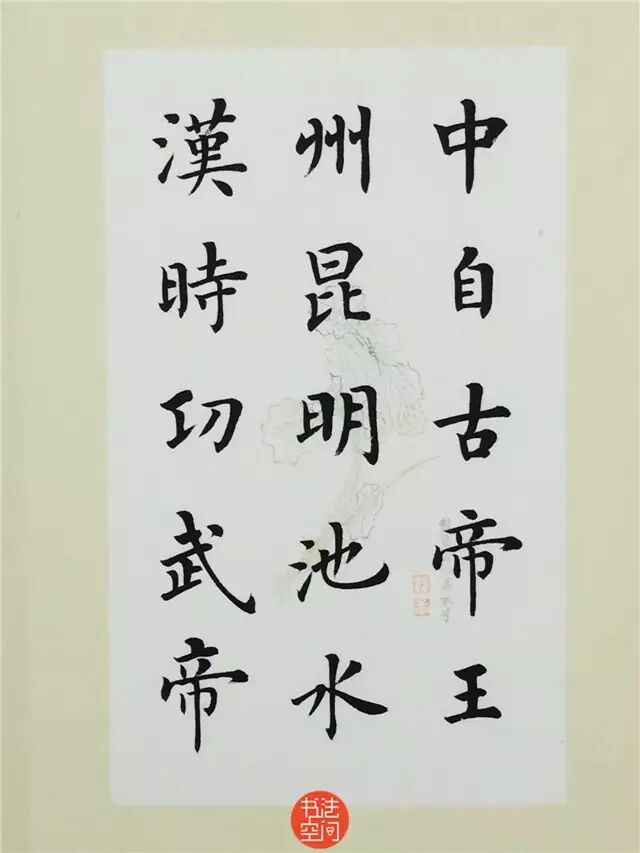 中自古帝王
州昆明池水
漢時功武帝
书法空间